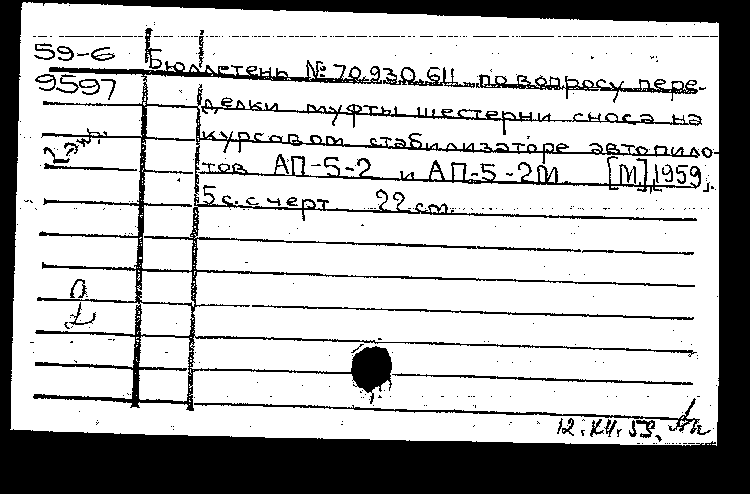 59-6
Бюллетень № 70.930.611 по вопросу пере-
9597
делки муфты шестерни сноса на
курсовом стабилизаторе автопило-
2 экз.
тов АП-5-2 и АП-5-2М. [М], 1959.
5 с. с черт. 22 см.
12.XII.59.